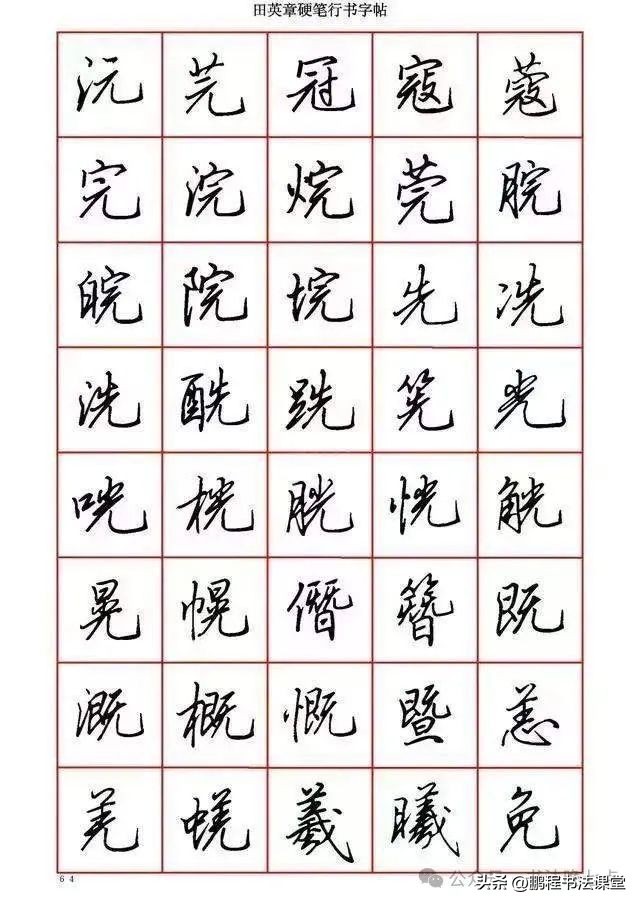 田英章硬笔行书字帖
沅芫冠寇蔻
完浣烷莞脘
皖院垸先冼
洗酰跣筅光
咣桄胱恍觥
晃幌僭簪既
溉概慨暨恙
羌蜣羲曦免
64
公众号
头条@鹏程书法课堂